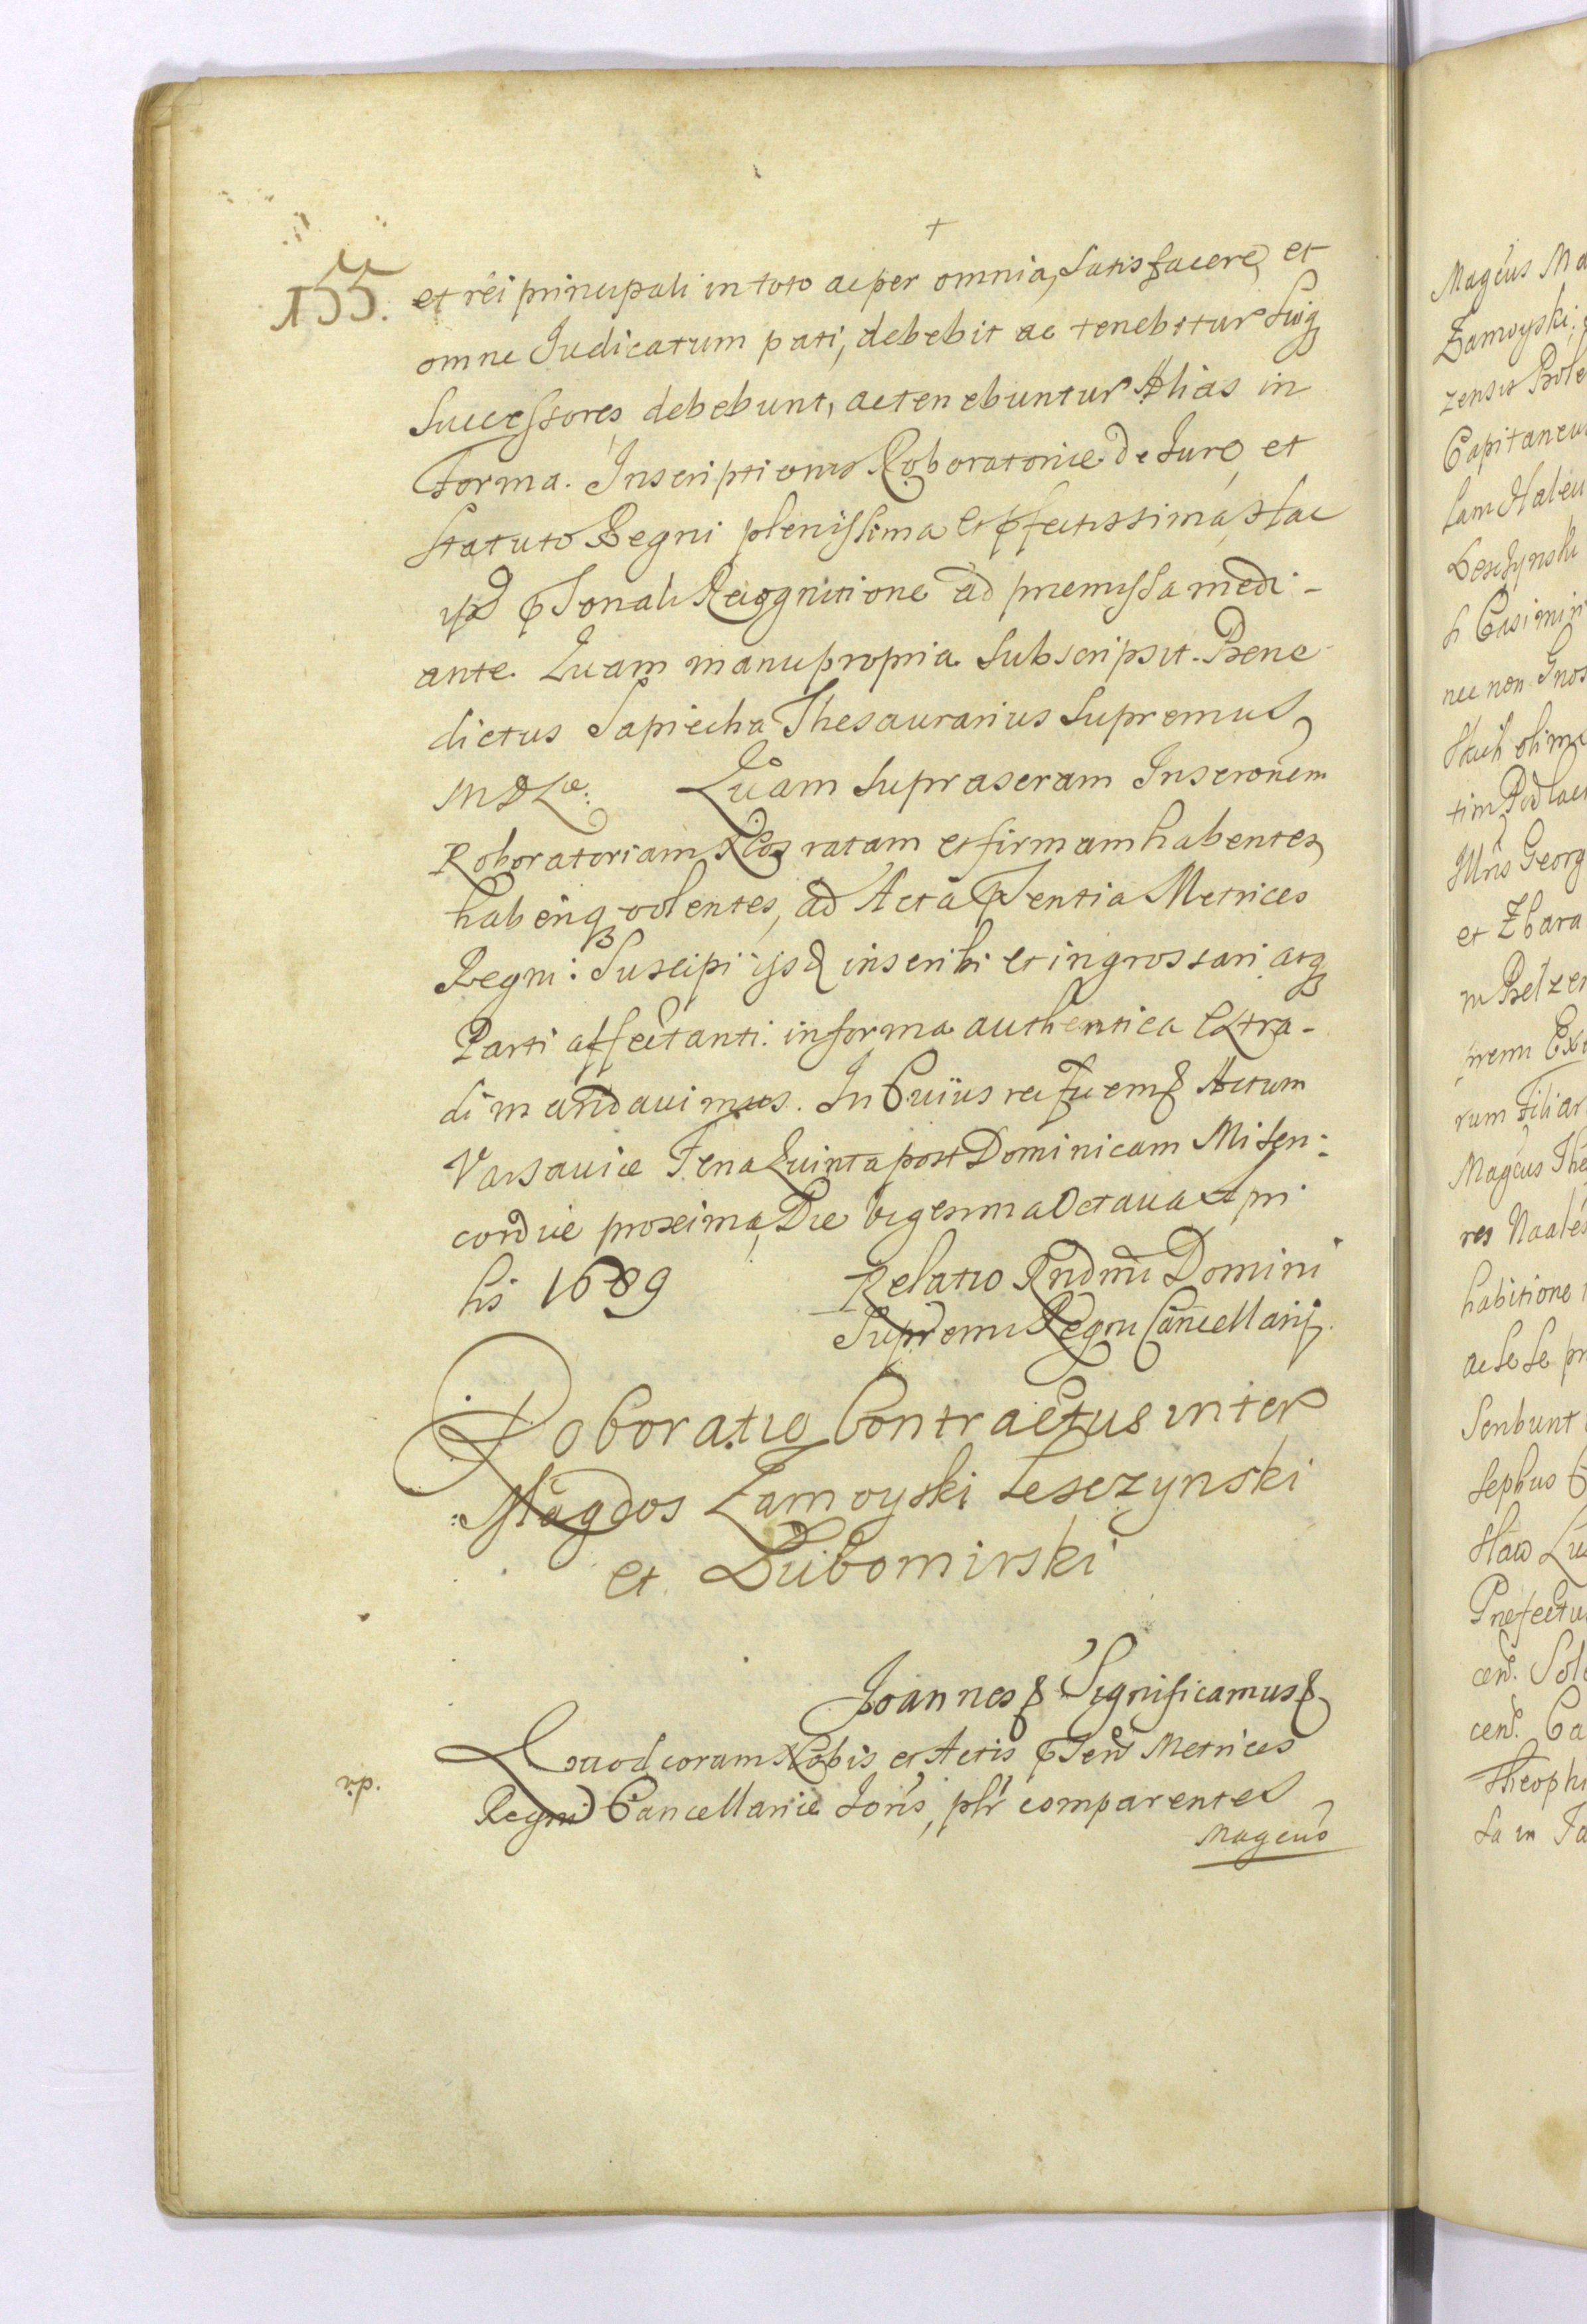 155.
et rei principali in toto ac per omnia, satisfacere, et
omne Judicatum pati, debebit ac tenebitur Suiq
Successores debebunt, ac tenebuntur Alias in
Forma. Inscriptionis Roboratoriæ de Jure, et
Statuto Regni plenissima et pfectissima, Hac
ipsd pSonali Recognitione ad præmissa medi-
ante. Quam manu propria subscripsit. Bene-
dictus Sapiecha Thesaurarius Supremus
M D Læ: Quam supraseram Inscronem
Roboratoriam Nos ratam et firmam habentes
haberiq volentes, ad Acta pSentia Metrices
Regni: Suscipi ijsq inscribi et ingrossari, atq
Parti affectanti in forma authentica Extra-
di mandavimus. In Cuius rei fidem & Actum
Varsaviæ Feria Quinta post Dominicam Miseri-
cordiæ proxima, Die vigesima Octava Apri
lis 1689 Relatio Rndmi Domini
Supremi Regni Cancellarij.
Roboratio Contractus inter
Magcos Zamoyski Lesczynski
et Lubomirski
Joannes & Significamus &
Quod coram Nobis et Actis pSent Metrices
Regni Cancellariæ Joris, plr comparentes
Magcus
Magcus Ma
Zamoyski;
zensis Bole
Capitaneu
lam Haleu
Lesczynski
h Casimiri
nec non Gnos
tim Podlac
Illris Georg
et Zbara
m Belzen
rum filiar
Magcus The
res Naales
habitione
ac se se pr
Senbunt
sephus C
Præfectu
cens. Sol
cens. Ca
Theophi
sa in Fa